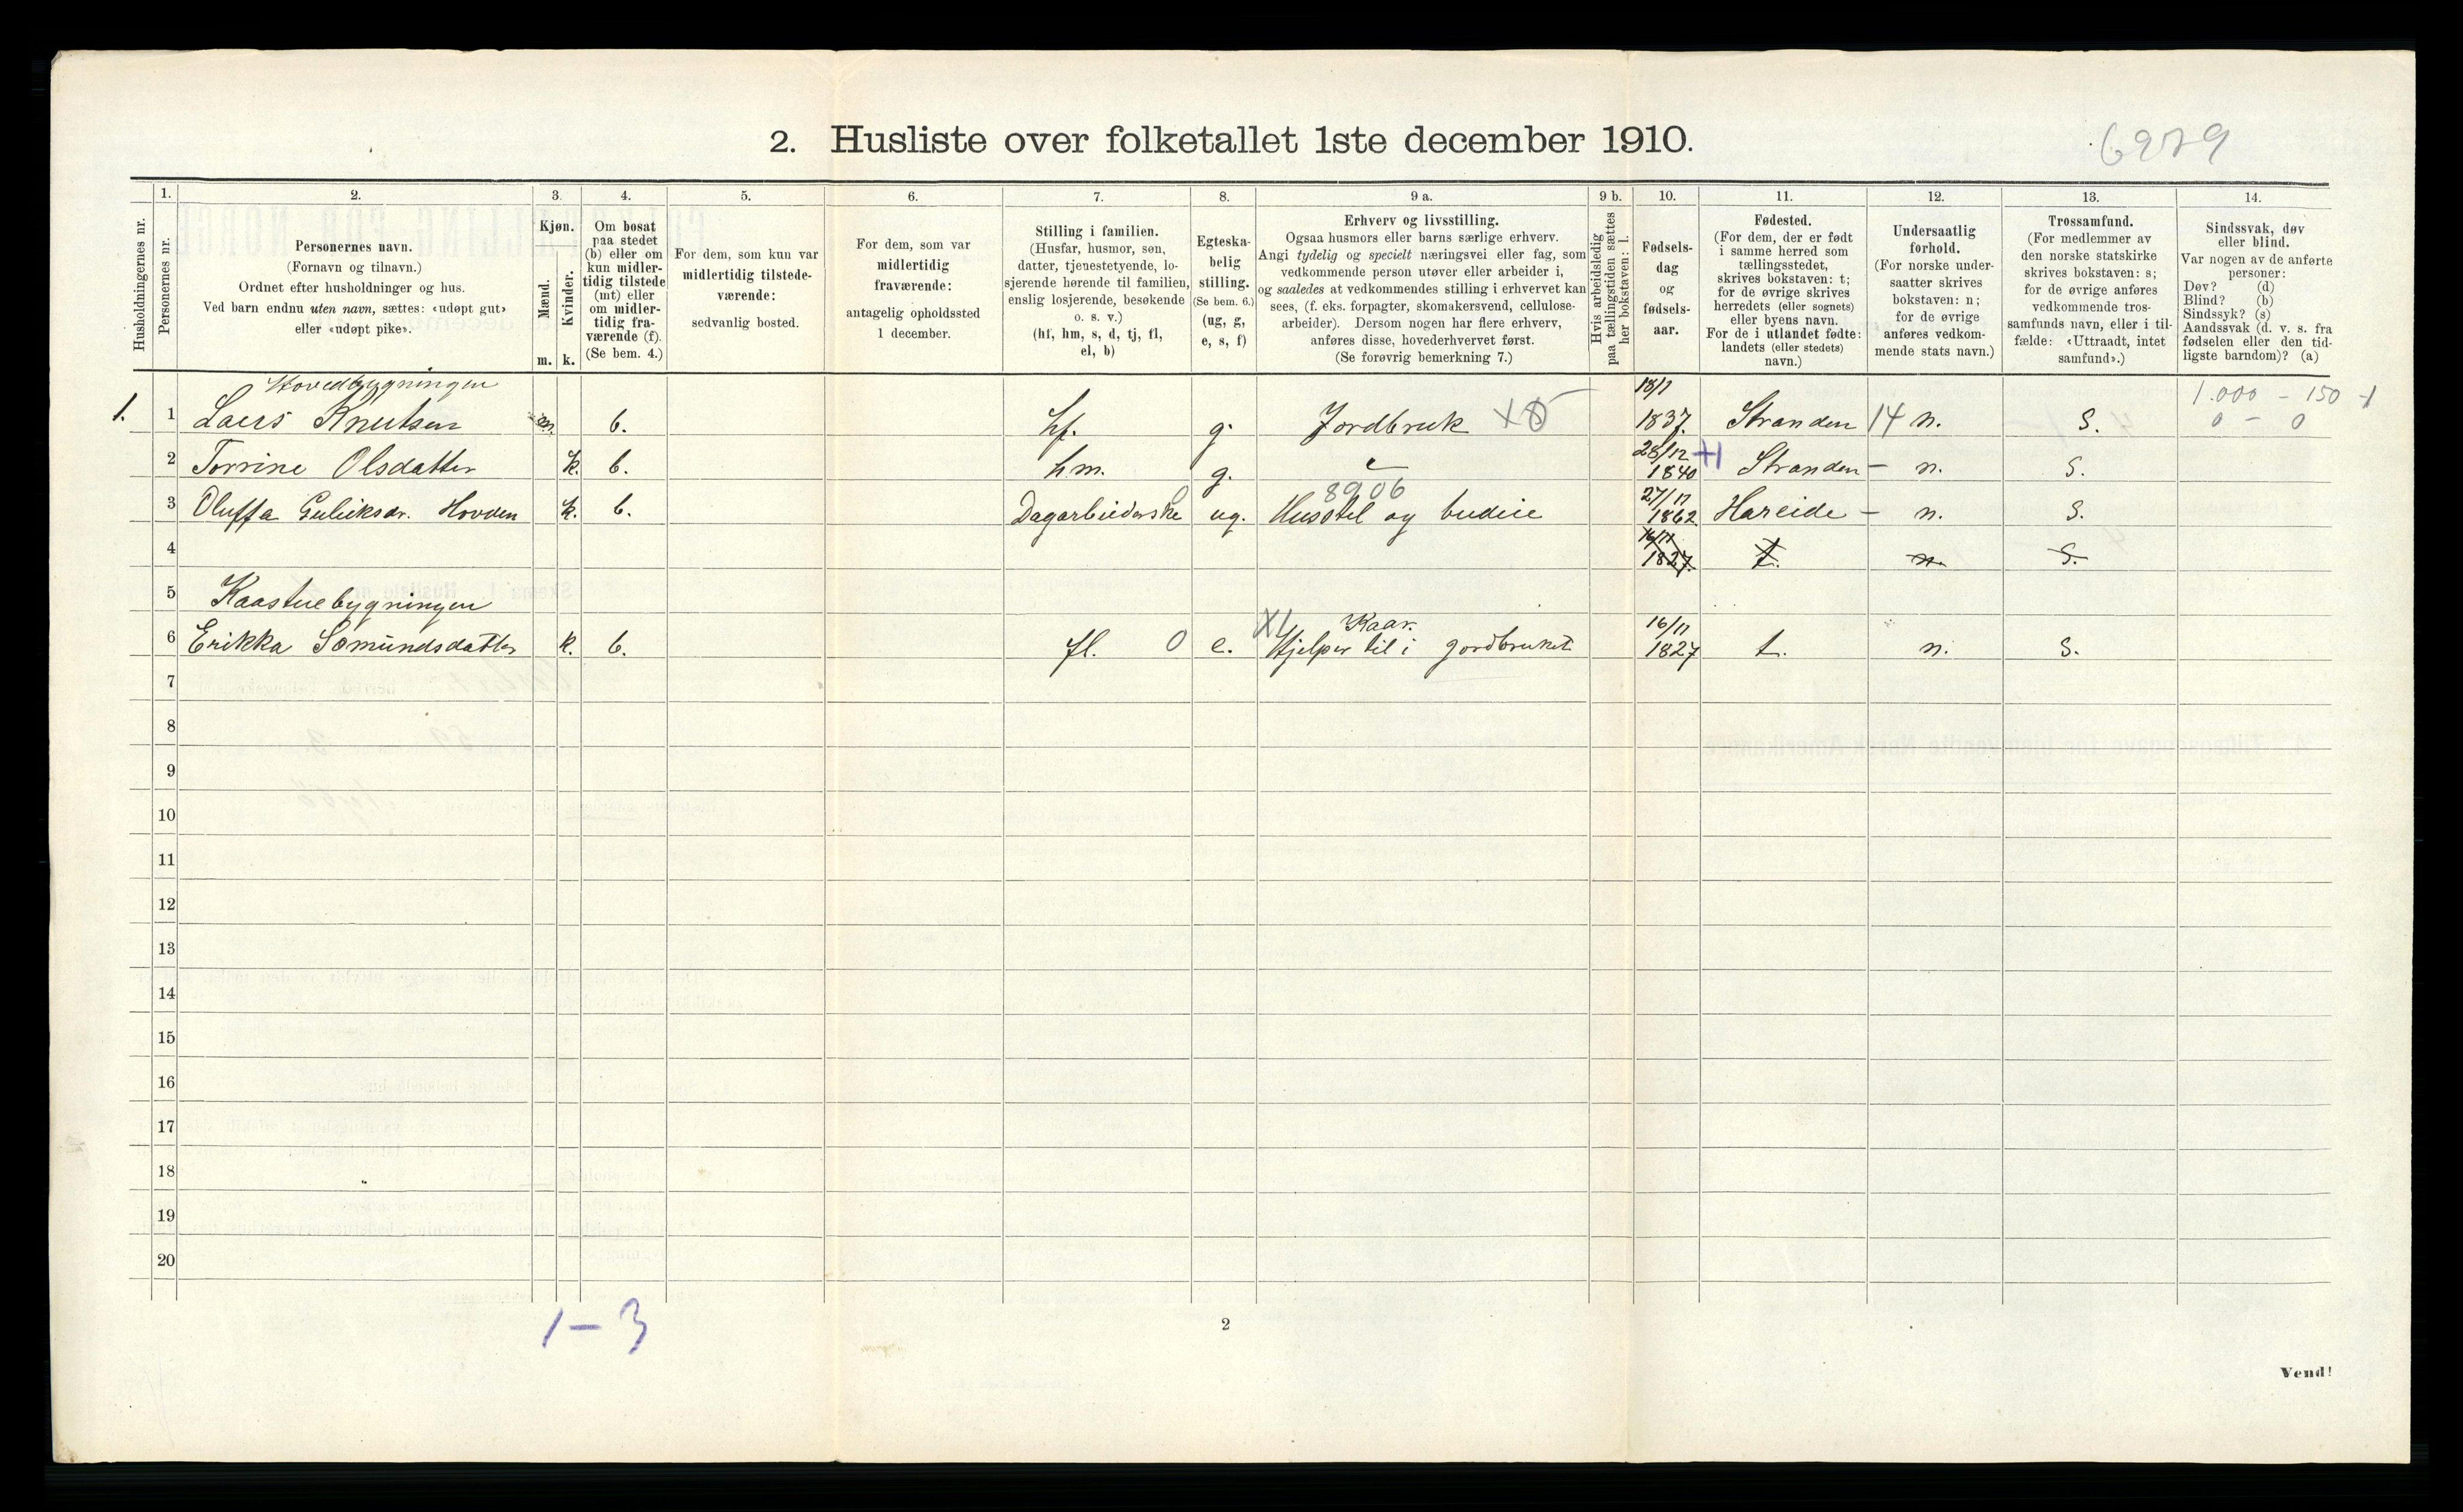 2. Husliste over folketallet 1ste december 1910.
6979
Husholdningernes nr.
1.
Personernes nr.
2.
Personernes navn.
(Fornavn og tilnavn.)
Ordnet efter husholdninger og hus.
Ved barn endnu uten navn, sættes: «udøpt gut»
eller «udøpt pike».
3.
Kjøn.
Mænd.
Kvinder.
m. k.
4.
Om bosat
paa stedet
(b) eller om
kun midler-
tidig tilstede
(mt) eller
om midler-
tidig fra-
værende (f).
(Se bem. 4.)
5.
For dem, som kun var
midlertidig tilstede-
værende:
sedvanlig bosted.
6.
For dem, som var
midlertidig
fraværende:
antagelig opholdssted
1 december.
7.
Stilling i familien.
(Husfar, husmor, søn,
datter, tjenestetyende, lo-
sjerende hørende til familien,
enslig losjerende, besøkende
o. s. v.)
(hf, hm, s, d, tj, fl,
el, b)
8.
Egteska-
belig
stilling.
(Se bem. 6.)
(ug, g,
e, s, f)
9 a.
Erhverv og livsstilling.
Ogsaa husmors eller barns særlige erhverv.
Angi tydelig og specielt næringsvei eller fag, som
vedkommende person utøver eller arbeider i,
og saaledes at vedkommendes stilling i erhvervet kan
sees, (f. eks. forpagter, skomakersvend, cellulose-
arbeider). Dersom nogen har flere erhverv,
anføres disse, hovederhvervet først.
(Se forøvrig bemerkning 7.)
9 b.
Hvis arbeidsledig
paa tællingstiden sættes
her bokstaven: l.
10.
Fødsels-
dag
og
fødsels-
aar.
11.
Fødested.
(For dem, der er født
i samme herred som
tællingsstedet,
skrives bokstaven: t;
for de øvrige skrives
herredets (eller sognets)
eller byens navn.
For de i utlandet fødte:
landets (eller stedets)
navn.)
12.
Undersaatlig
forhold.
(For norske under-
saatter skrives
bokstaven: n;
for de øvrige
anføres vedkom-
mende stats navn.)
13.
Trossamfund.
(For medlemmer av
den norske statskirke
skrives bokstaven: s;
for de øvrige anføres
vedkommende tros-
samfunds navn, eller i til-
fælde: «Uttraadt, intet
samfund».)
14.
Sindssvak, døv
eller blind.
Var nogen av de anførte
personer:
Døv? (d)
Blind? (b)
Sindssyk? (s)
Aandssvak (d. v. s. fra
fødselen eller den tid-
ligste barndom)? (a)
Hovedbygningen
1. 1 Lars Knutsen m. b. hf. g. Jordbruk 18/11 1837. Stranden 14 n. S. 1.000 - 150
0 - 0
2 Torrine Olsdatter k. b. hm. g. 28/12 1840 Stranden - n. S.
8906
3 Oluffa Guliksdr. Hovden k. b. Dagarbeiderske ug. Husstel og budeie 27/12 1862 Hareide - n. S.
4 16/11 1827. t. n. S.
5 Kaastuebygningen
Kaar.
6 Erikka Somundsdatter k. b. fl. 0 e. Hjelper til i gordbruket 16/11 1827 t. n. S.
7
8
9
10
11
12
13
14
15
16
17
18
19
20
1-3
2
Vend!